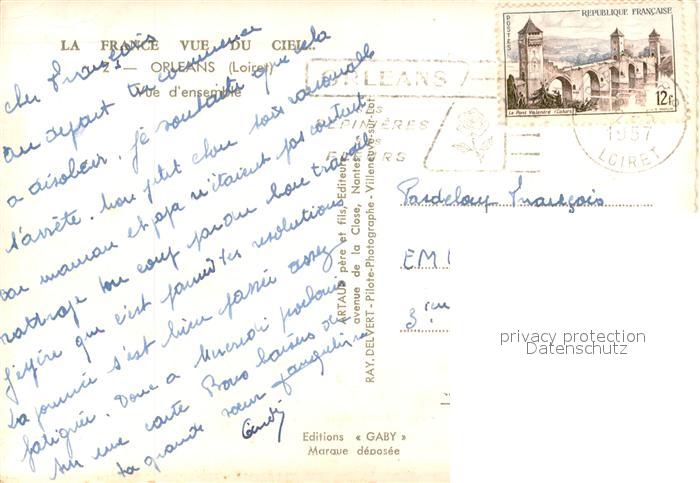 LA FRANCE VUE DU CIEL...
2 — ORLEANS (Loiret)
Vue d'ensemble
Cher François
au départ tu commence
a désobéir. Je souhaite que cela
s'arrête. Mon petit chou sois raisonnable
car maman et papa n'étaient pas content
rattrape ton coup par du bon travail
J'espère que c'est parmi tes resolutions
La journée s'est bien passée assez
fatiguée. Donc a Mercredi prochain
sur une carte Bons baisers de
ta grande sœur Jacqueline
Lundi
Editions « GABY »
Marque déposée
ARTAUD père et fils, Editeurs
avenue de la Close, Nantes
RAY. DELVERT - Pilote-Photographe - Villeneuve-sur-Lot
ORLEANS
SES
PEPINIERES
SES
FLEURS
POSTES
REPUBLIQUE FRANÇAISE
Le Pont Valentré (Cahors)
12F
1957
LOIRET
Pardelou François
EM
3
privacy protection
Datenschutz